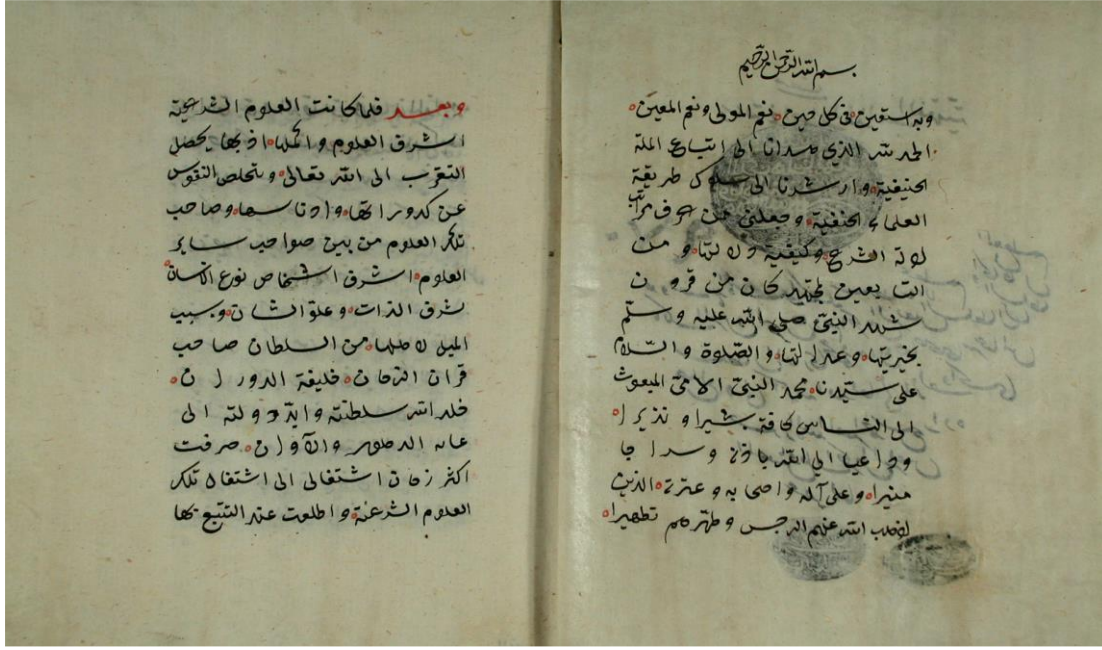 بسم الله الرحمن الرحيم
وبه نستعين في كل حين نعم المولى ونعم المعين
الحمد لله الذي هدانا الى اتباع الملة
الحنيفية وارشدنا الى سلوك طريقة
العلماء الحنفية وجعلني من
لادلة الشرع وكيفية دلالتها ومن
التابعين لمجتهد كان من قرون
شهد النبي صلى الله عليه وسلم
بخيريتها وعدالتها والصلوة والسلام
على سيدنا محمد النبي الامي المبعوث
الى الناس كافة بشيرا ونذيرا
وداعيا الى الله باذنه وسراجا
منيرا وعلى آله واصحابه وعترته الذين
اذهب الله عنهم الرجس وطهرهم تطهيرا
وبعد فلما كانت العلوم الشرعية
اشرف العلوم واكملها اذ بها يحصل
التقرب الى الله تعالى ويتخلص النفوس
عن كدوراتها وادناسها وصاحب
تلك العلوم من بين صواحب ساير
العلوم اشرف اشخاص نوع الانسان
لشرف الذات وعلو الشان وبسبب
الميل لاهلها من السلطان صاحب
قران الزمان خليفة الدوران
خلد الله سلطنته وايد دولته الى
الدهور والآوان صرفت
اكثر زمان اشتغالى الى اشتغال تلك
العلوم الشرعية واطلعت عند التتبع بها